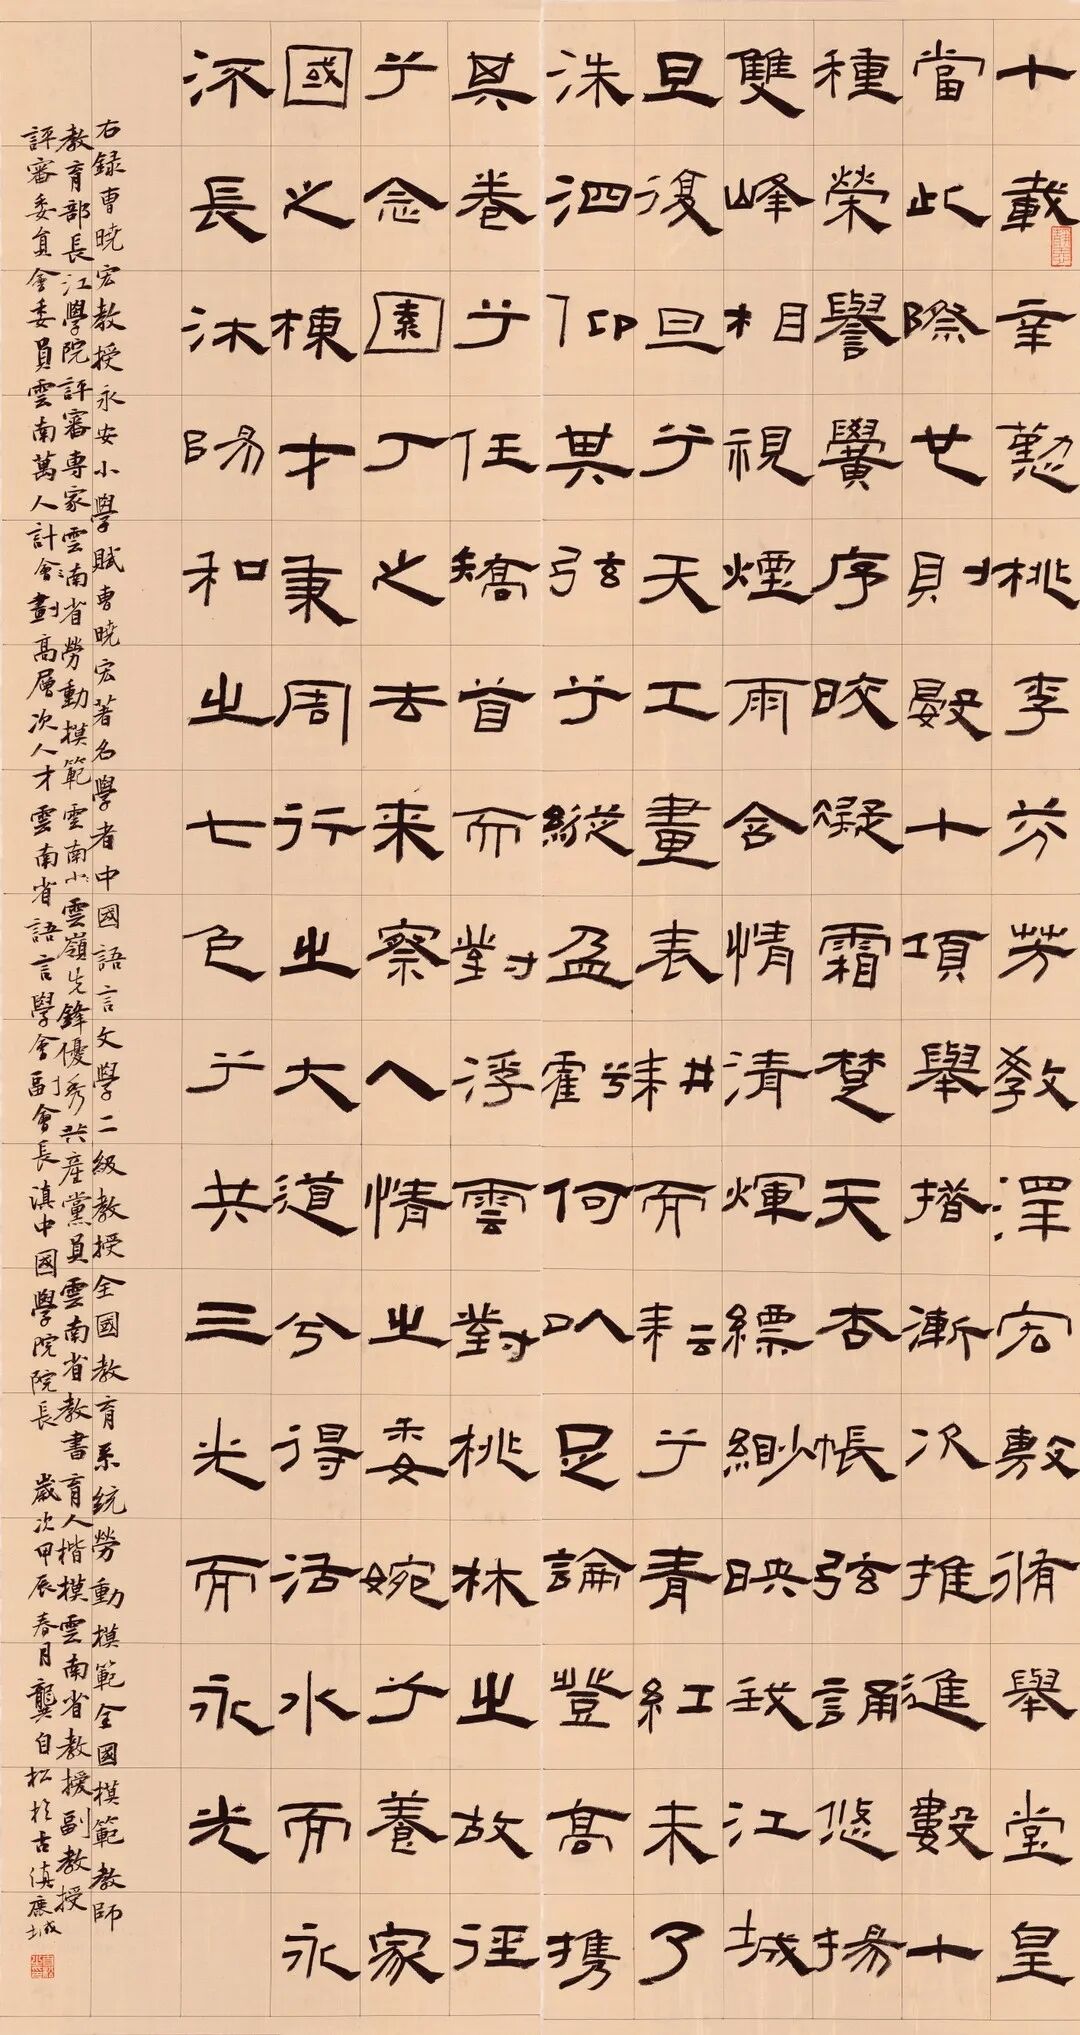 十載辛懃桃李芬芳教澤宏敷脩舉堂皇
當此際也則數十項舉措漸次推進數十
種榮譽黌序皎凝霜楚天杏帳弦誦悠揚
雙峰相視煙雨含情清輝縹緲映我江城
旦復旦兮天工畫表耕而耘兮青紅未了
洙泗仰其弦兮縱盈虧何以足論登高携
其卷兮任矯首而對浮雲對桃林之故徑
兮念園丁之去来察人情之委婉兮養家
國之棟才秉周行之大道兮得活水而永
長沐陽和之七色兮共三光而永光
右録曹曉宏教授永安小學賦曹曉宏著名學者中國語言文學二級教授全國教育系統勞動模範全國模範教師
教育部長江學院評審專家雲南省勞動模範雲南小雲嶺先鋒優秀共產黨員雲南省教書育人楷模雲南省教授副教授
評審委員會委員雲南萬人計會劃高層次人才雲南省語言學會副會長滇中國學院院長 歲次甲辰春月龔自松於古滇鹿城